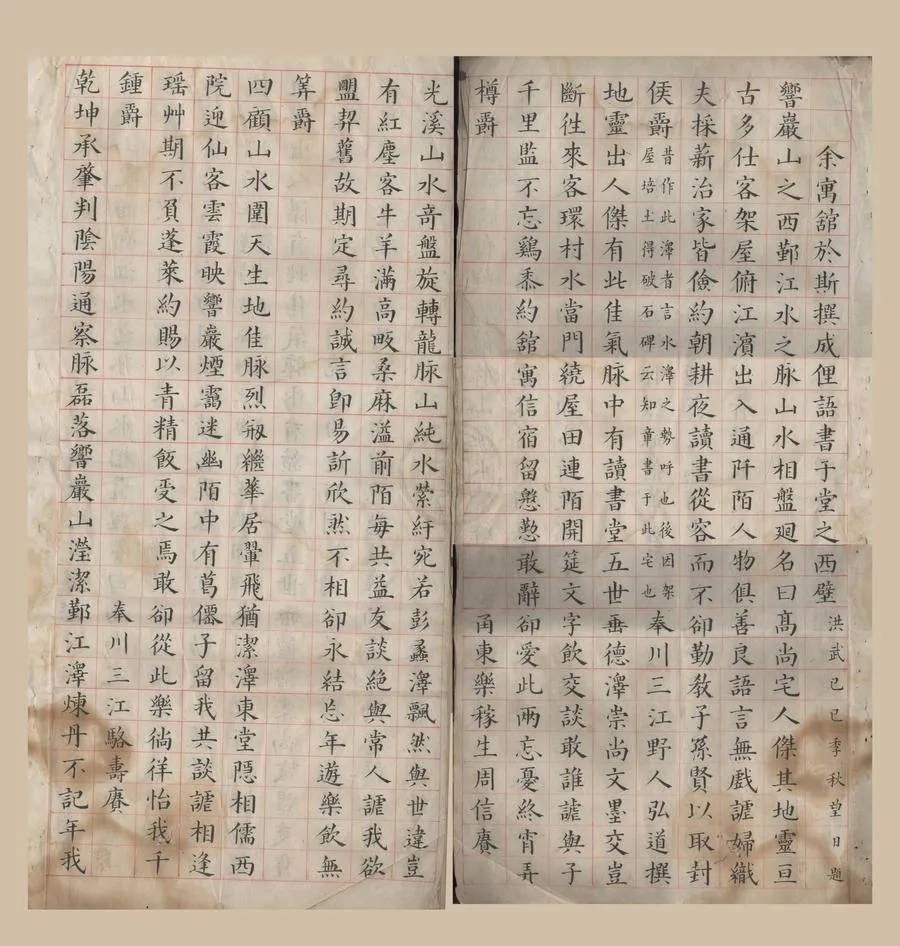 余寓舘於斯撰成俚語書于堂之西壁 洪武己巳季秋望日題
響巖山之西鄞江水之脉山水相盤廻名曰髙尚宅人傑其地靈亘
古多仕客架屋俯江濱出入通阡陌人物俱善良語言無戲謔婦織
夫採薪治家皆儉約朝耕夜讀書從容而不卻勤敎子孫賢以取封
侯爵 昔作此澤者言水澤之勢呼也後因架屋培土得破石碑云知章書于此宅也 奉川三江野人弘道撰
地靈出人傑有此佳氣脉中有讀書堂五世垂德澤崇尚文墨交豈
斷徃來客環村水當門繞屋田連陌開筵文字飲交談敢誰謔與子
千里監不忘鷄黍約舘寓信宿留慇懃敢辭卻愛此兩忘憂終宵弄
樽爵 甬東樂稼生周信賡
光溪山水竒盤旋轉龍脉山純水縈紆宛若彭蠡澤飄然與世違豈
有紅塵客牛羊滿高畈桑麻溢前陌每共益友談絕與常人謔我欲
盟契舊故期定尋約誠言卽易訢欣然不相卻永結忘年遊樂飲無
筭爵
四顧山水圍天生地佳脉烈繼華居翬飛猶潔澤東堂隱相儒西
院迎仙客雲霞映響巖煙靄迷幽陌中有葛僊子留我共談謔相逢
瑶艸期不負蓬萊約賜以青精飯受之焉敢卻從此樂徜徉怡我千
鍾爵 奉川三江駱壽賡
乾坤承肇判陰陽通察脉磊落響巖山瀅潔鄞江澤煉丹不記年我